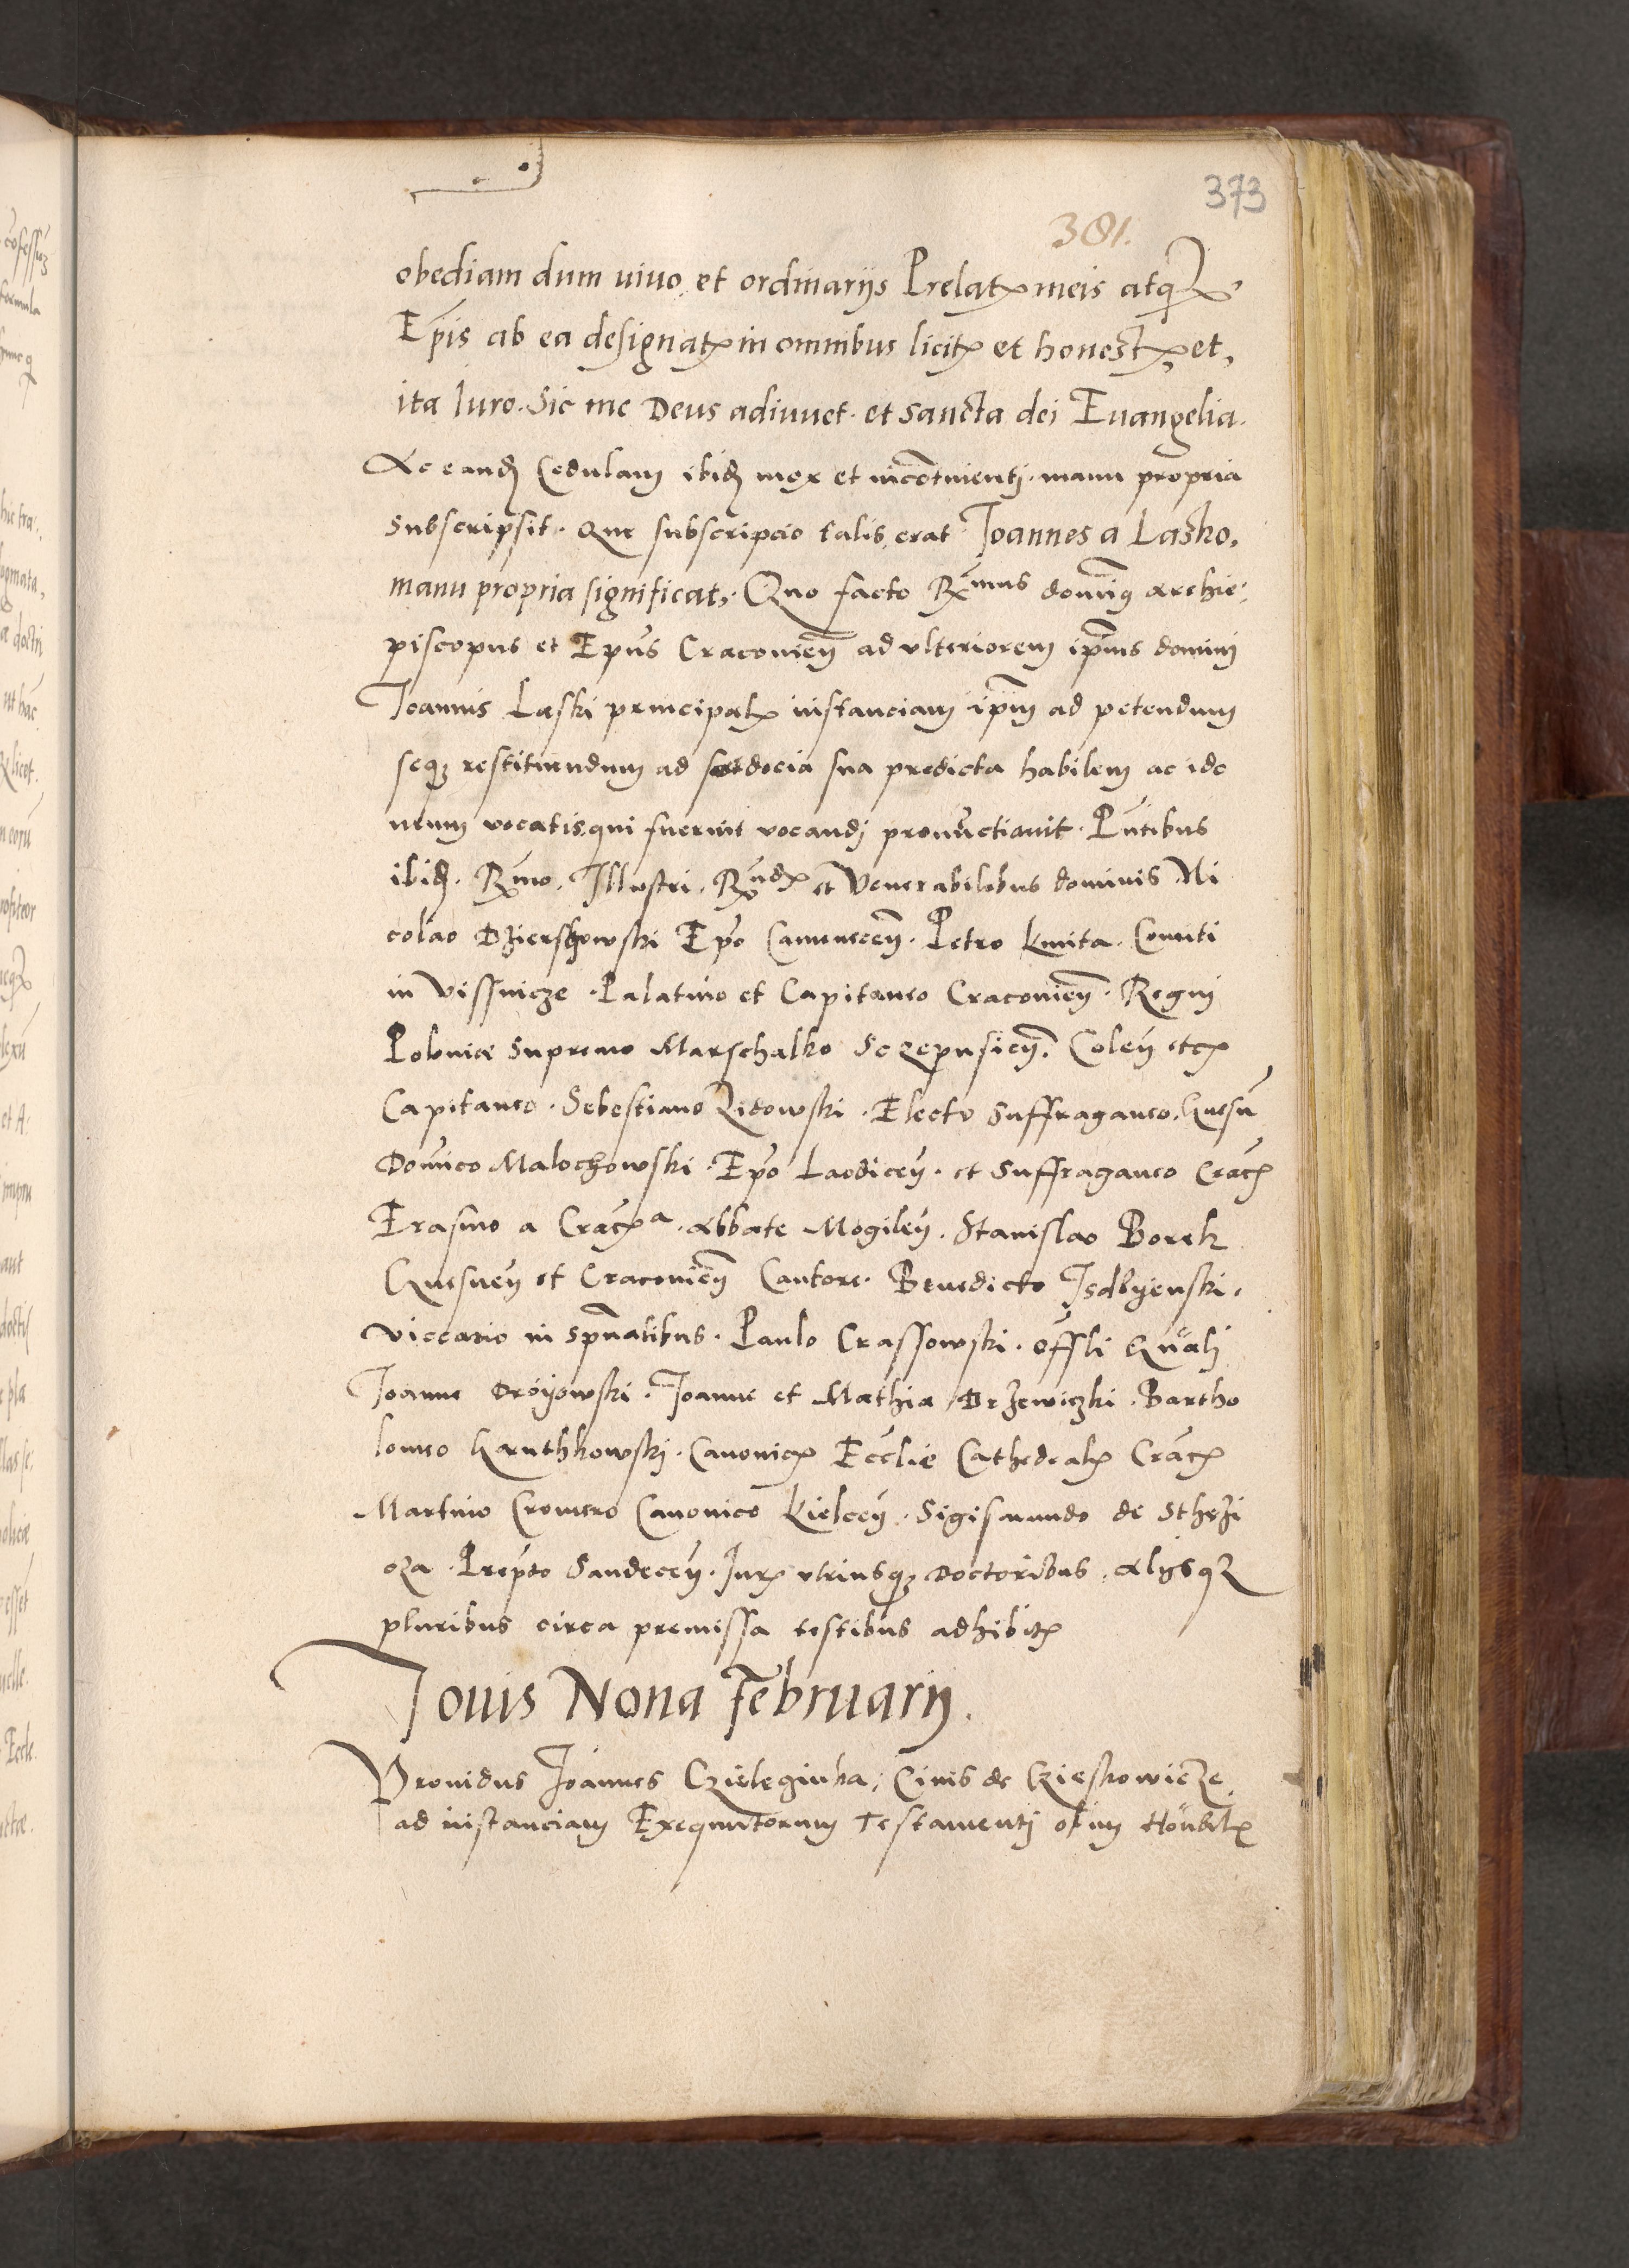 373
381.
obediam dum uiuo, et ordinarijs Prelatꝭ meis atqꝫ
Ep̄is ab ea designatꝭ in omnibus licitꝭ et honestꝭ, et,
ita Iuro. Sic me Deus adiuuet. et sancta dei Euangelia.
Ac eandꝫ Cedulam ibidꝫ mox et incōtinentj. manu propria
subscripsit. Que subscripcio talis erat Joannes a Lasko,
manu propria significat,. Quo facto Rx̄mus dominꝯ Archie-
piscopus et Ep̄us Cracovien̄ ad vlteriorem ip̄ius domini
Joannis Laski principalꝭ instanciam ip̄m ad petendum
seqꝫ restituendum ad sac̄docia sua predicta habilem ac ido
neum vocatis qui fuerint vocandj pronūctiauit. Pn̄tibus
ibidꝫ. Rx̄mo, Illustri, Rx̄ndꝭ et Venerabilibus dominis Ni
colao Dzierschowski Ep̄o Camenecen̄. Petro Kmita. Comiti
in Vissnicze. Palatino et Capitaneo Cracovien̄. Regnj
Polonie Supremo Marschalko Sczepusien̄. Colen̄ etcꝭ
Capitaneo. Sebestiano Zidowski. Electo Suffraganeo. Gnesn̄
Dominico Malochowski. Ep̄o Laodicen̄. et Suffraganeo Cracꝭ
Erasmo a Cracꝭa. Abbate Mogilen̄. Stanislao Borek
Gnesnen̄ et Cracovien̄ Cantore. Benedicto Isdbyenski.
Viccario in sp̄ualibus. Paulo Crassowski. Offli Gn̄ali
Joanne Droyowski. Joanne et Mathia Drzewiczki. Bartho
lomeo Ganthkowskj. Canonicꝭ Ecc̄lie Cathedralꝭ Cracꝭ
Martino Cromero Canonico Kielcen̄. Sigismundo de Sthezi
cza. Prep̄to Sandecen̄. Jurꝭ vtriusqꝫ Doctoribus. Alijsqꝫ
pluribus circa premissa testibus adhibitꝭ
Iouis Nona Februarij.
Prouidus Joannes Czielegiuka, Ciuis de Czieskowicze
ad instanciam Exequutorum Testamentj olim Hon̄bilꝭ